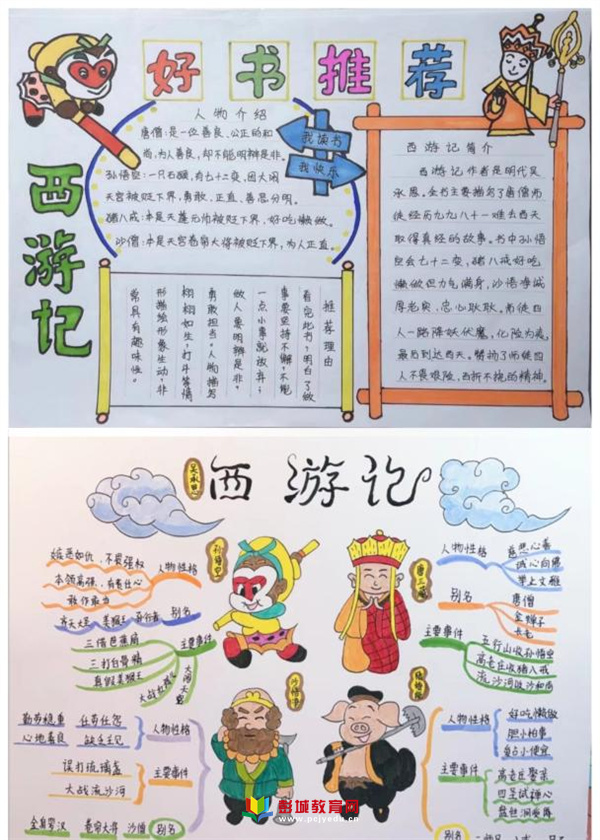 好书推荐
西游记
人物介绍
唐僧:是一位善良、公正的和
尚,为人善良,却不能明辨是非。
孙悟空:一只石猴,有七十二变,因大闹
天宫被贬下界,勇敢,正直,善恶分明。
猪八戒:本是天蓬元帅被贬下界,好吃懒做。
沙僧:本是天宫卷帘大将被贬下界,为人正直。
我读书
我快乐
推荐理由
看完此书,明白了做
事要坚持不懈,不能
一点小事就放弃;
做人要明辨是非。
勇敢担当。人物描写
栩栩如生,打斗等情
形描绘形象生动,非
常具有趣味性。
西游记简介
西游记作者是明代吴
承恩。全书主要描写了唐僧师
徒经历九九八十一难去西天
取得真经的故事。书中孙悟
空会七十二变,猪八戒好吃
懒做但力气满身,沙悟净诚
厚老实,忠心耿耿。师徒四
人一路降妖伏魔,化险为夷,
最后到达西天。赞扬了师徒四
人不畏艰险,百折不挠的精神。
吴承恩
西游记
孙悟空
人物性格
嫉恶如仇,不畏强权
本领高强,有责任心
敢作敢为
别名
齐天大圣 美猴王 孙行者
主要事件
三借芭蕉扇
三打白骨精
真假美猴王
大闹天宫
唐三藏
人物性格
慈悲心善
诚心向佛
举止文雅
别名
唐僧
金蝉子
长老
主要事件
五行山收孙悟空
高老庄收猪八戒
流沙河收沙和尚
沙悟净
人物性格
勤劳稳重
任劳任怨
心地善良
主要事件
误打琉璃盏
大战流沙河
别名
金身罗汉 卷帘大将 沙僧
猪悟能
人物性格
好吃懒做
胆小怕事
贪占小便宜
主要事件
高老庄娶亲
四圣试禅心
别名
彭城教育网
www.pcjyedu.cn